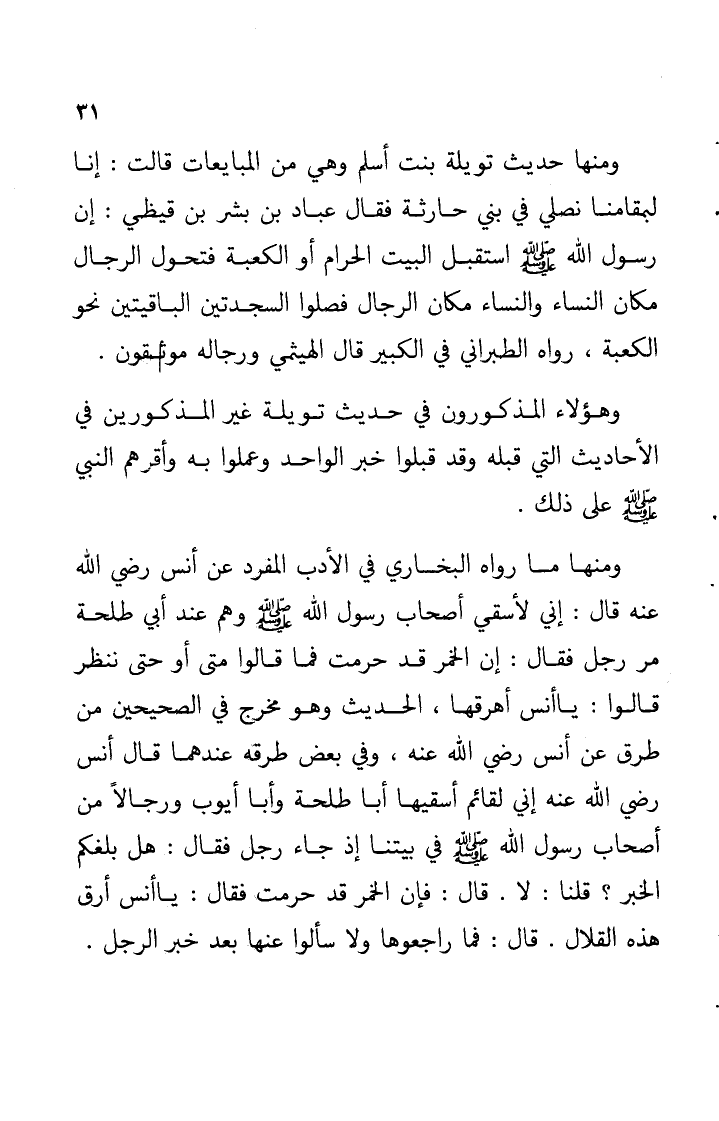 ٣١
ومنها حديث تويلة بنت أسلم وهي من المبايعات قالت : إنا
لبمقامنا نصلي في بني حارثة فقال عباد بن بشر بن قيظي : إن
رسول الله ﷺ استقبل البيت الحرام أو الكعبة فتحول الرجال
مكان النساء والنساء مكان الرجال فصلوا السجدتين الباقيتين نحو
الكعبة ، رواه الطبراني في الكبير قال الهيثمي ورجاله موثقون .
وهؤلاء المذكورون في حديث تويلة غير المذكورين في
الأحاديث التي قبله وقد قبلوا خبر الواحد وعملوا به وأقرهم النبي
ﷺ على ذلك .
ومنها ما رواه البخاري في الأدب المفرد عن أنس رضي الله
عنه قال : إني لأسقي أصحاب رسول الله ﷺ وهم عند أبي طلحة
مر رجل فقال : إن الخمر قد حرمت فما قالوا متى أو حتى ننظر
قالوا : ياأنس أهرقها ، الحديث وهو مخرج في الصحيحين من
طرق عن أنس رضي الله عنه ، وفي بعض طرقه عندهما قال أنس
رضي الله عنه إني لقائم أسقيها أبا طلحة وأبا أيوب ورجالاً من
أصحاب رسول الله ﷺ في بيتنا إذ جاء رجل فقال : هل بلغكم
الخبر ؟ قلنا : لا . قال : فإن الخمر قد حرمت فقال : ياأنس أرق
هذه القلال . قال : فما راجعوها ولا سألوا عنها بعد خبر الرجل .